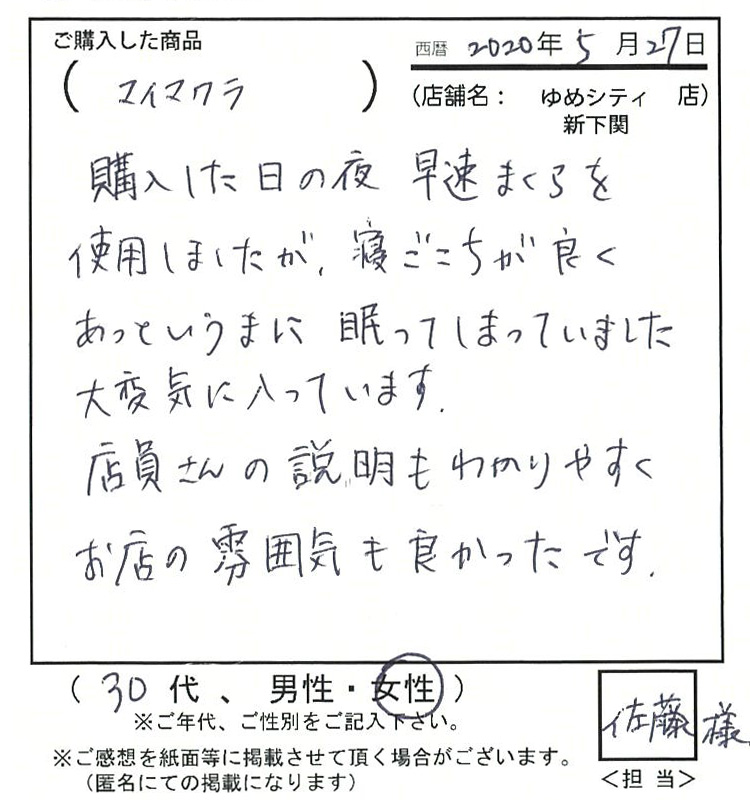 ご購入した商品
(マイマクラ)
西暦 2020年 5月27日
(店舗名: ゆめシティ 店)
新下関
購入した日の夜 早速まくらを
使用しましたが、寝ごこちが良く
あっというまに 眠ってしまっていました
大変気に入っています.
店員さんの説明もわかりやすく
お店の雰囲気も良かったです.
(30代、男性・女性)
※ご年代、ご性別をご記入下さい。
※ご感想を紙面等に掲載させて頂く場合がございます。
(匿名にての掲載になります)
佐藤様
＜担 当＞